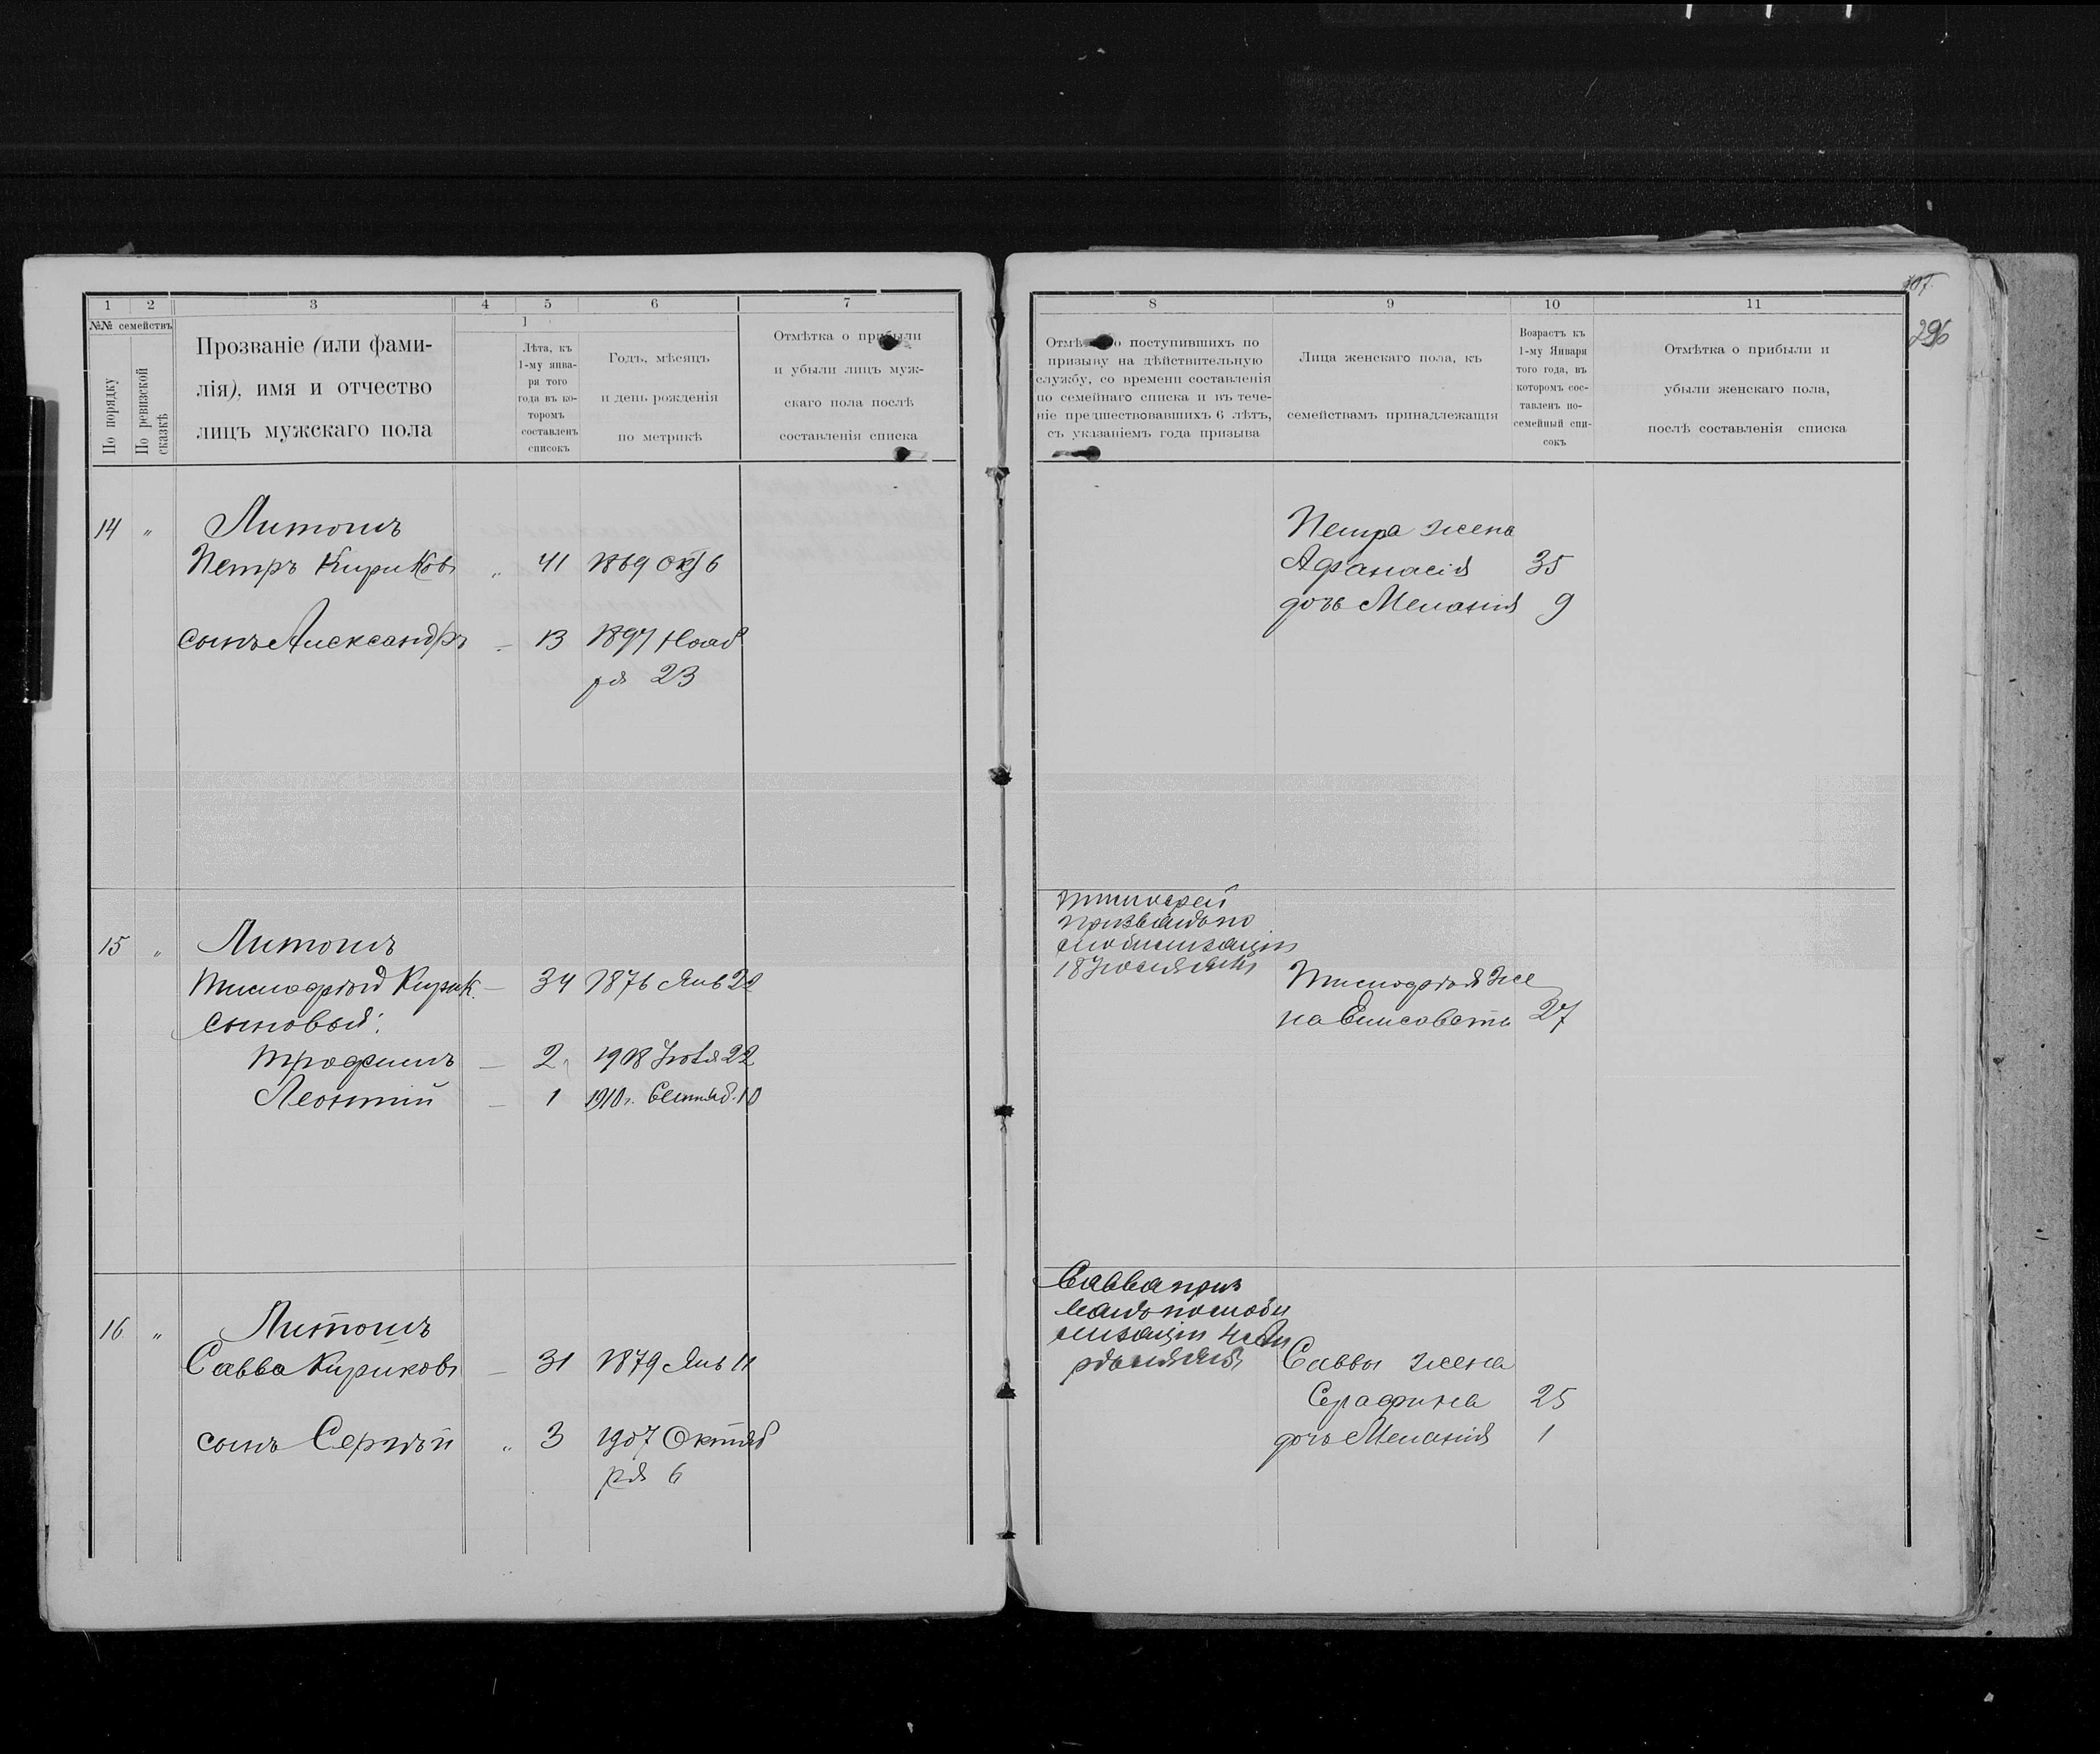 107.
296
1 2 3 4 5 6 7
№№ семействъ
По порядку
По ревизской сказкѣ
Прозваніе (или фами-
лія), имя и отчество
лицъ мужскаго пола
1
Лѣта, къ
1-му янва-
ря того
года въ ко-
торомъ
составленъ
списокъ
Годъ, мѣсяцъ
и день рожденія
по метрикѣ
Отмѣтка о прибыли
и убыли лицъ муж-
скаго пола послѣ
составленія списка
14 „ Литошъ
Петръ Кириковъ „ 41 1869 Окт 6
сынъ Александръ — 13 1897 Нояб
ря 23
15 „ Литошъ
Тимофѣй Кирик. — 34 1876 Янв 22
сыновья:
Трофимъ — 2 1908 Іюля 22
Леонтій — 1 1910 г. Сентяб. 10
16 „ Литошъ
Савва Кириковъ — 31 1879 Янв 11
сынъ Сергѣй „ 3 1907 Октяб
ря 6
8 9 10 11
Отмѣ о поступившихъ по
призыву на дѣйствительную
службу, со времени составленія
по семейнаго списка и въ тече-
ніе предшествовавшихъ 6 лѣтъ,
съ указаніемъ года призыва
Лица женскаго пола, къ
семействамъ принадлежащія
Возрастъ къ
1-му Января
того года, въ
которомъ сос-
тавленъ по-
семейный спи-
сокъ
Отмѣтка о прибыли и
убыли женскаго пола,
послѣ составленія списка
Петра жена
Афанасія 35
дочь Меланія 9
Тимофей
призванъ по
мобилизаціи
18 Іюля
Тимофѣя же
на Елисавета 27
Савва приз
ванъ по моби
лизаціи
Саввы жена
Серафима 25
дочь Меланія 1